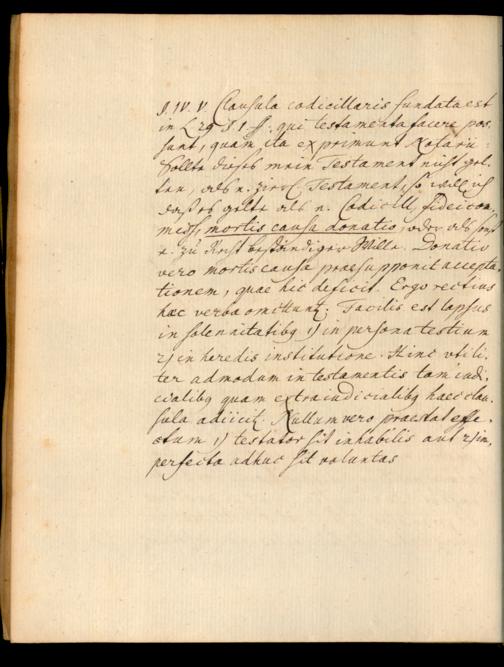 §. IV. V. Clausula codicillaris fundata est
in L 29 §. 1 ff. qui testamenta facere pos„
sunt, quam ita exprimunt Notarii:
Sollte dieses mein Testament nicht gel„
ten, als e. zierl. Testament, so will ich
daß es gelte als e. Codicill, fideicom„
miss, mortis causa donatio, oder als sonst
e. zu Recht beständiger Wille. Donatio
vero mortis causa praesupponit accepta„
tionem, quae hic deficit. Ergo rectius
haec verba omittunt. Facilis est lapsus
in solennitatibq 1) in persona testium
2) in heredis institutione. Hinc vtili„
ter admodum in testamentis tam iudi„
cialibq quam extraiudicialibq haec clau„
sula adiicit. Nullum vero praestat effe„
ctum 1) testator sit inhabilis aut 2) im„
perfecta adhuc sit voluntas